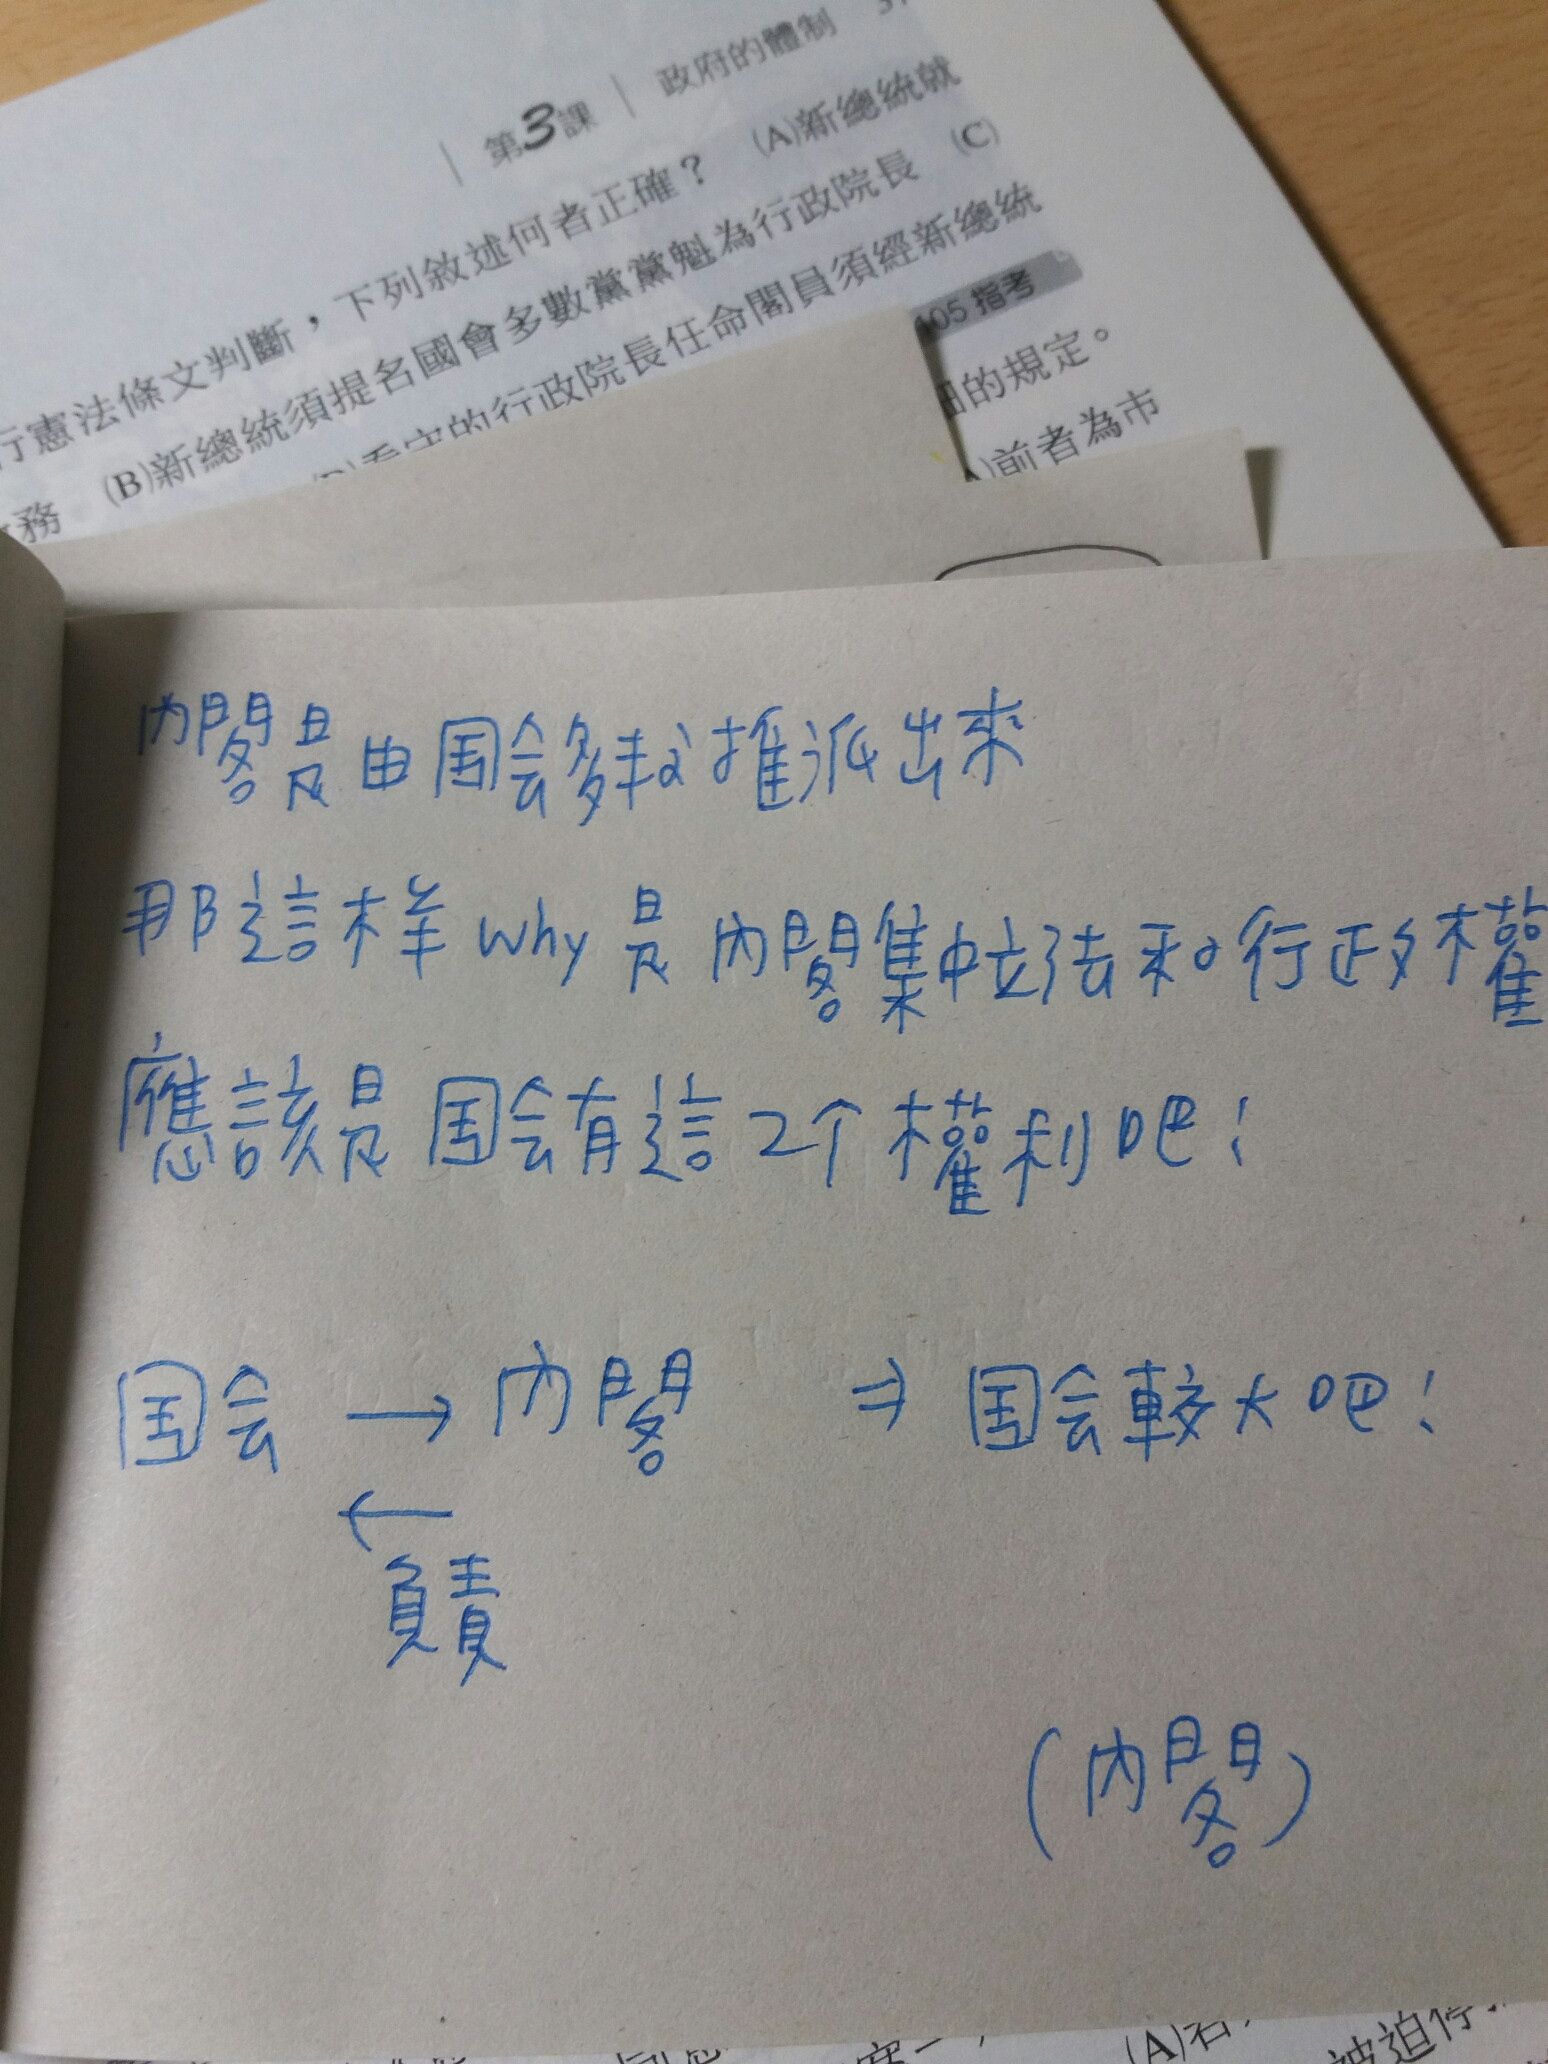 第3課 | 政府的體制
行憲法條文判斷,下列敘述何者正確? (A)新總統就
務 (B)新總統須提名國會多數黨黨魁為行政院長 (C)
看守的行政院長任命閣員須經新總統
105 指考
的規定。
)前者為市
內閣是由国会多数推派出來
那這样why是內閣集中立法和行政權
應該是国会有這2个權利吧!
国会 → 內閣 ⇒ 国会較大吧!
←
負責
(內閣)
(A)若
被迫停